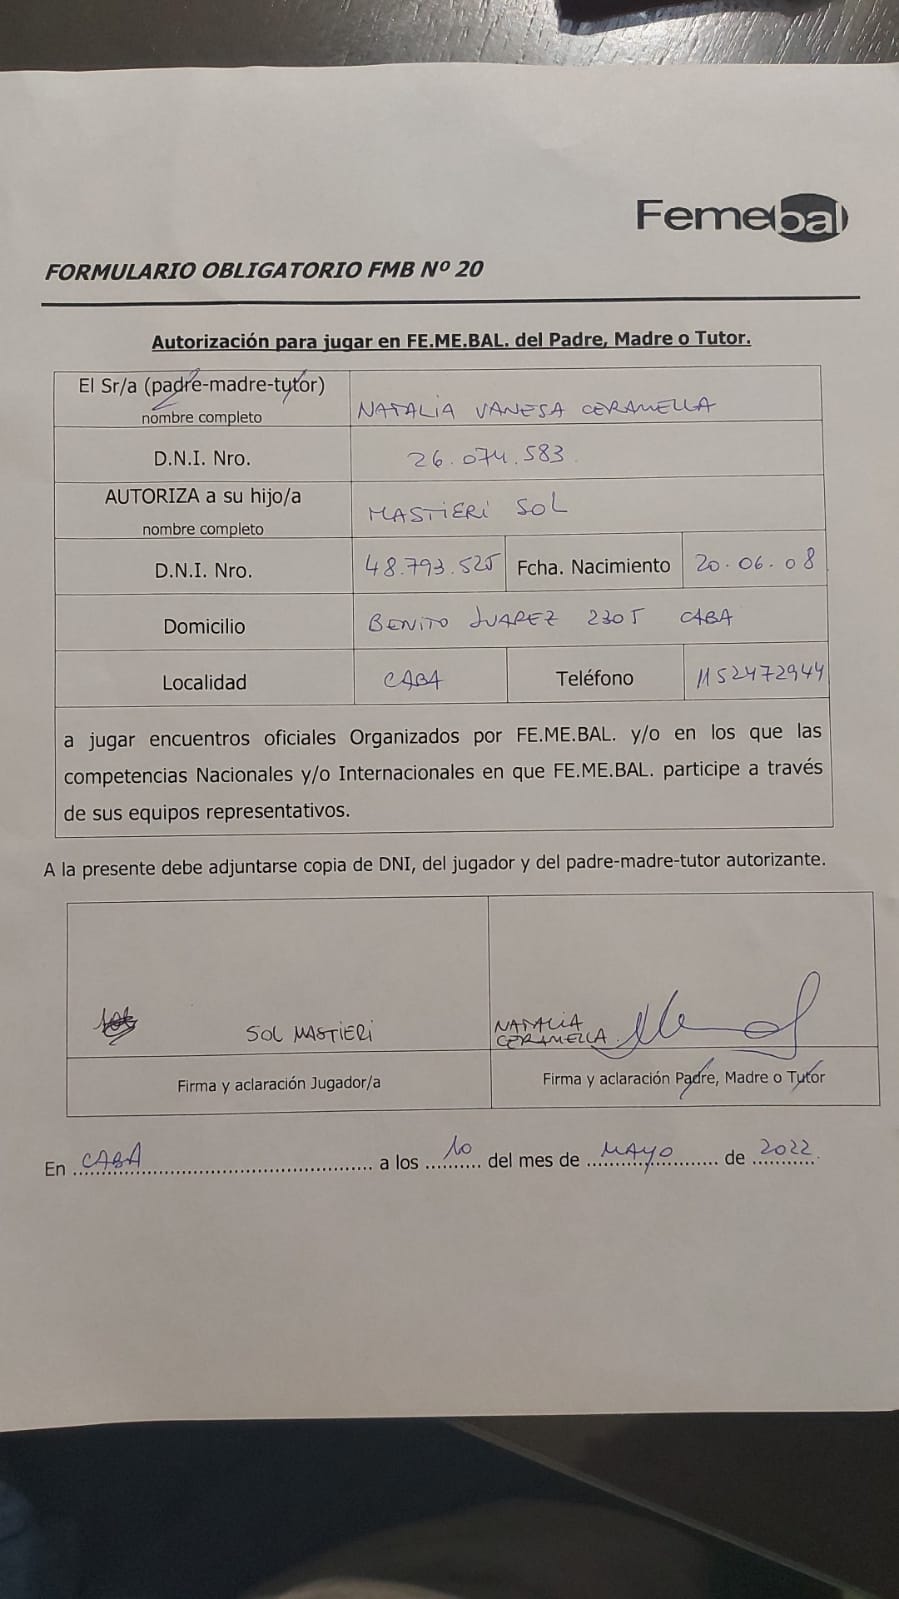 Femebal
FORMULARIO OBLIGATORIO FMB Nº 20
Autorización para jugar en FE.ME.BAL. del Padre, Madre o Tutor.
El Sr/a (padre-madre-tutor)
nombre completo
NATALIA VANESA CERAMELLA
D.N.I. Nro.
26.074.583
AUTORIZA a su hijo/a
nombre completo
MASTIERI SOL
D.N.I. Nro.
48.793.525
Fcha. Nacimiento
20.06.08
Domicilio
BENITO JUAREZ 2305 CABA
Localidad
CABA
Teléfono
1152472944
a jugar encuentros oficiales Organizados por FE.ME.BAL. y/o en los que las
competencias Nacionales y/o Internacionales en que FE.ME.BAL. participe a través
de sus equipos representativos.
A la presente debe adjuntarse copia de DNI, del jugador y del padre-madre-tutor autorizante.
SOL MASTIERI
NATALIA
CERAMELLA
Firma y aclaración Jugador/a
Firma y aclaración Padre, Madre o Tutor
En CABA a los 10 del mes de MAYO de 2022